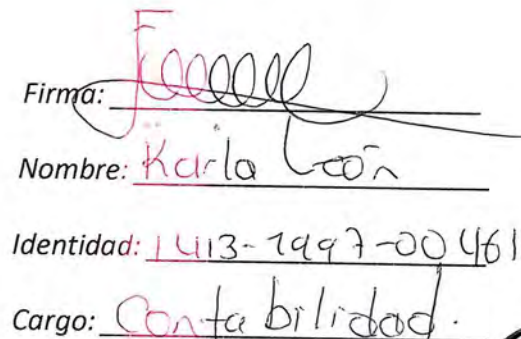 Firma:
Nombre: Karla León
Identidad: 1413-1997-00461
Cargo: Contabilidad.